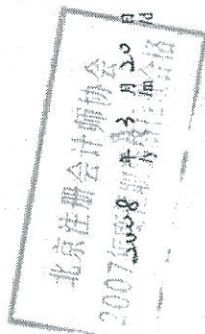 北京注册会计师协会
2007年度
2008年3月20日
y m d